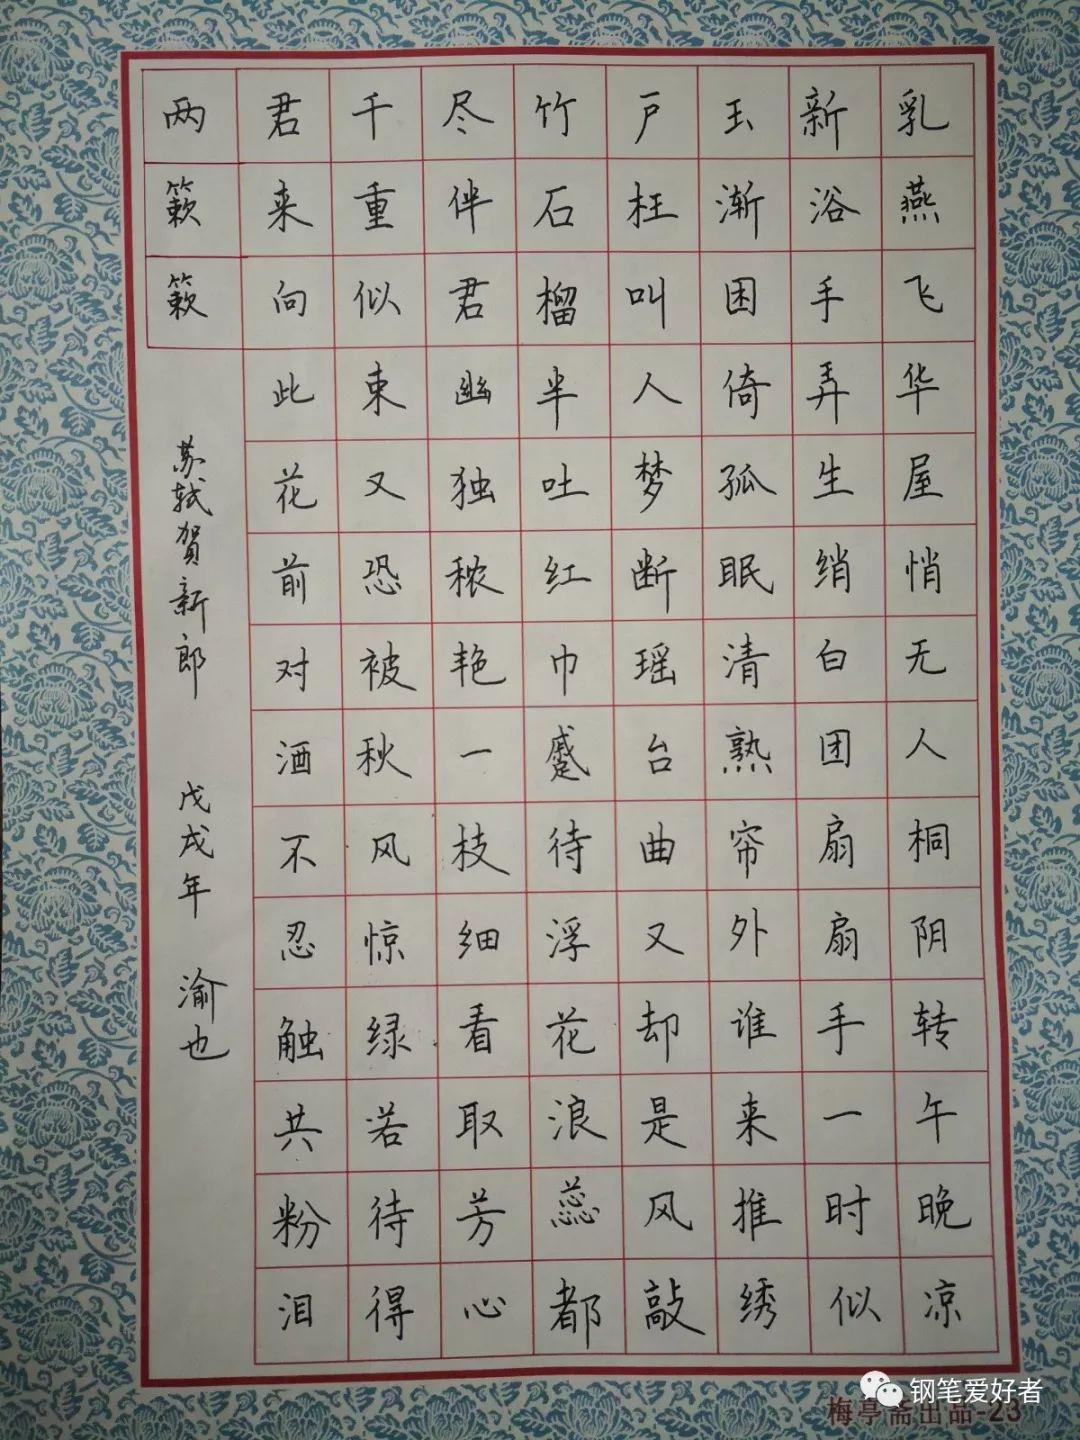 乳燕飞华屋悄无人桐阴转午晚凉
新浴手弄生绡白团扇扇手一时似
玉渐困倚孤眠清熟帘外谁来推绣
户枉叫人梦断瑶台曲又却是风敲
竹石榴半吐红巾蹙待浮花浪蕊都
尽伴君幽独秾艳一枝细看取芳心
千重似束又恐被秋风惊绿若待得
君来向此花前对酒不忍触共粉泪
两簌簌
苏轼贺新郎 戊戌年 渝也
钢笔爱好者
梅亭斋出品-23